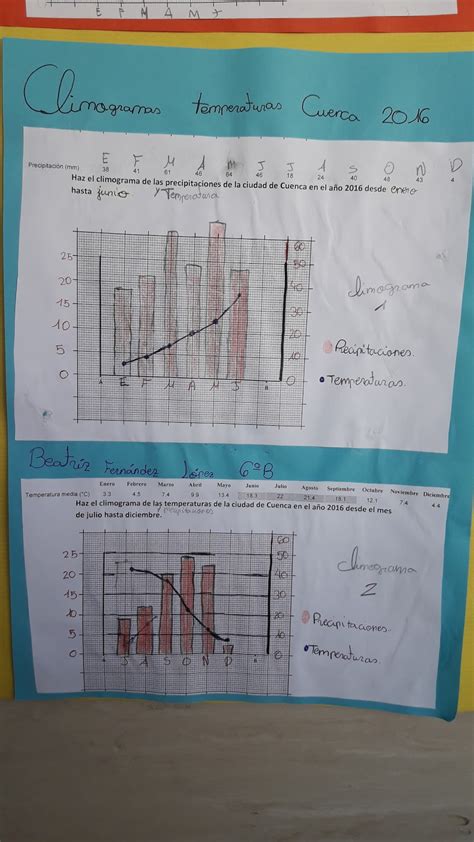 E F M A M J
Climogramas temperaturas Cuenca 2016
E F M A M J J A S O N D
Precipitación (mm) 38 41 61 46 64 45 18 24 40 48 43 4
Haz el climograma de las precipitaciones de la ciudad de Cuenca en el año 2016 desde enero
hasta junio y Temperatura
60
25 50
20 40
15 30
10 20
5 10
0 0
E F M A M J
Climograma
1
Precipitaciones.
Temperaturas.
Beatríz Fernández López 6ºB
Enero Febrero Marzo Abril Mayo Junio Julio Agosto Septiembre Octubre Noviembre Diciembre
Temperatura media (°C) 3.3 4.5 7.4 9.9 13.4 18.3 22 21.4 18.1 12.1 7.4 4.4
Haz el climograma de las temperaturas de la ciudad de Cuenca en el año 2016 desde el mes
de julio hasta diciembre. y precipitaciones
60
25 50
20 40
15 30
10 20
5 10
0 0
J A S O N D
Climograma
2
Precipitaciones.
Temperaturas.